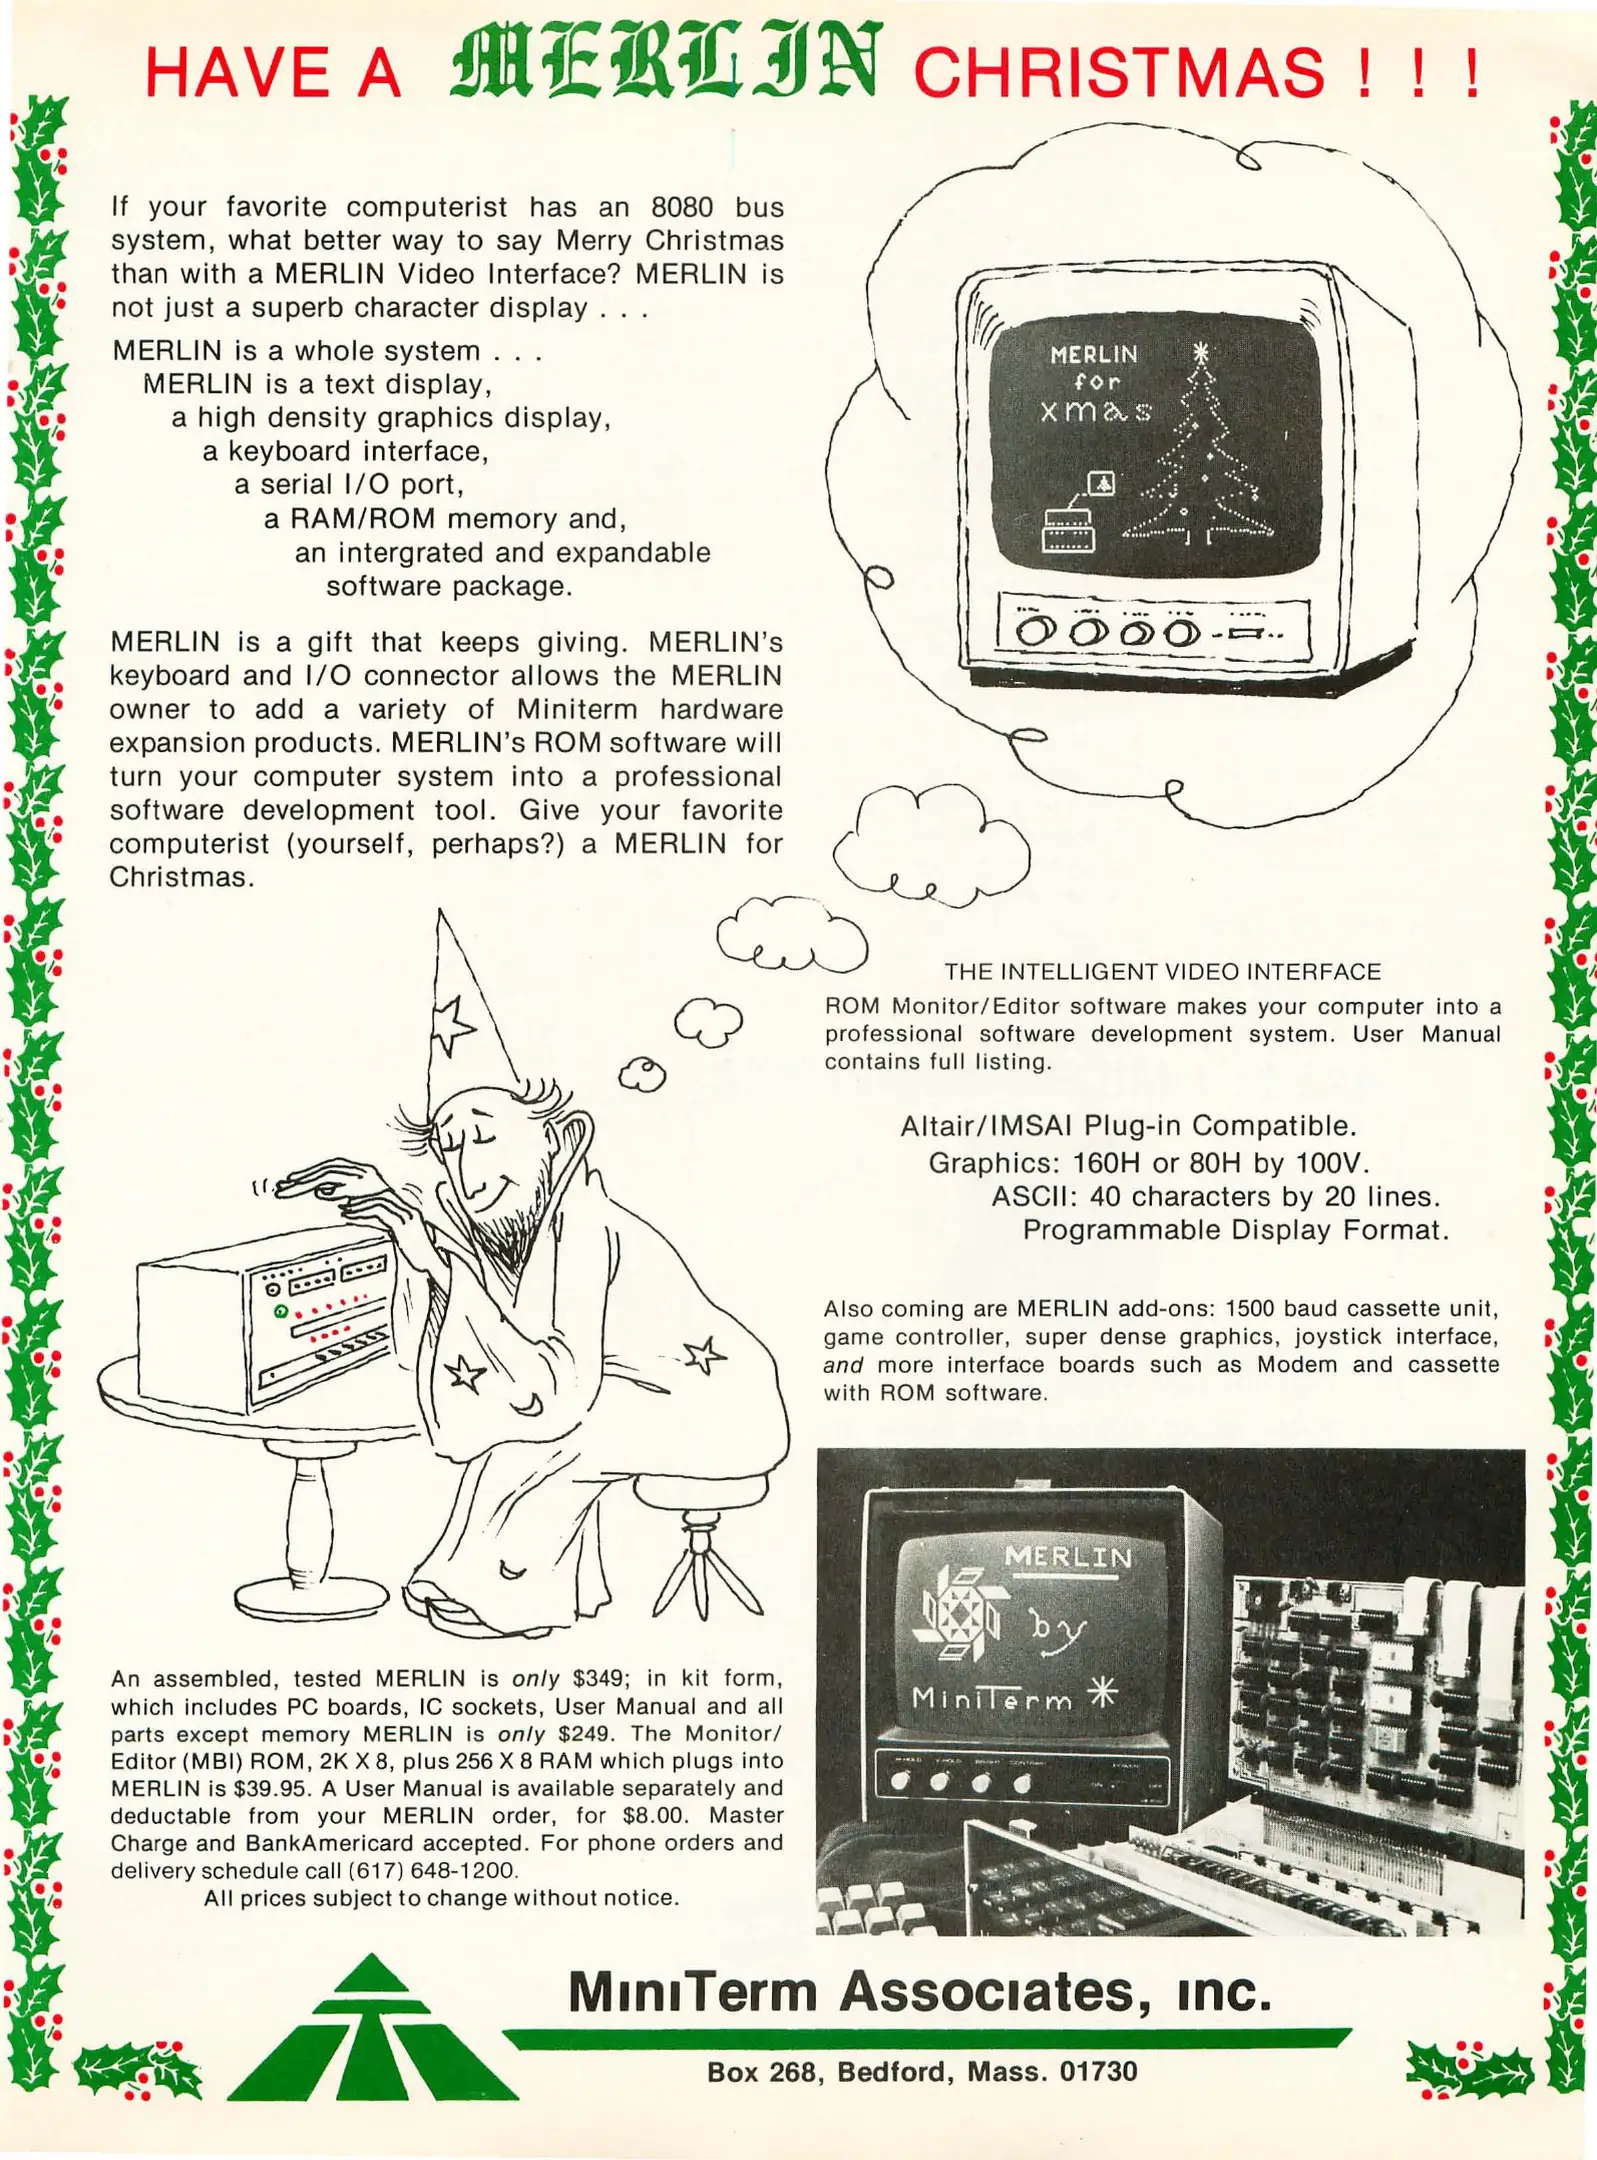 HAVE A MERLIN CHRISTMAS ! ! !
If your favorite computerist has an 8080 bus
system, what better way to say Merry Christmas
than with a MERLIN Video Interface? MERLIN is
not just a superb character display . . .
MERLIN is a whole system . . .
MERLIN is a text display,
a high density graphics display,
a keyboard interface,
a serial I/O port,
a RAM/ROM memory and,
an intergrated and expandable
software package.
MERLIN is a gift that keeps giving. MERLIN's
keyboard and I/O connector allows the MERLIN
owner to add a variety of Miniterm hardware
expansion products. MERLIN's ROM software will
turn your computer system into a professional
software development tool. Give your favorite
computerist (yourself, perhaps?) a MERLIN for
Christmas.
MERLIN
for
xmas
THE INTELLIGENT VIDEO INTERFACE
ROM Monitor/Editor software makes your computer into a
professional software development system. User Manual
contains full listing.
Altair/IMSAI Plug-in Compatible.
Graphics: 160H or 80H by 100V.
ASCII: 40 characters by 20 lines.
Programmable Display Format.
Also coming are MERLIN add-ons: 1500 baud cassette unit,
game controller, super dense graphics, joystick interface,
and more interface boards such as Modem and cassette
with ROM software.
MERLIN
by
MiniTerm
An assembled, tested MERLIN is only $349; in kit form,
which includes PC boards, IC sockets, User Manual and all
parts except memory MERLIN is only $249. The Monitor/
Editor (MBI) ROM, 2K X 8, plus 256 X 8 RAM which plugs into
MERLIN is $39.95. A User Manual is available separately and
deductable from your MERLIN order, for $8.00. Master
Charge and BankAmericard accepted. For phone orders and
delivery schedule call (617) 648-1200.
All prices subject to change without notice.
MiniTerm Associates, inc.
Box 268, Bedford, Mass. 01730